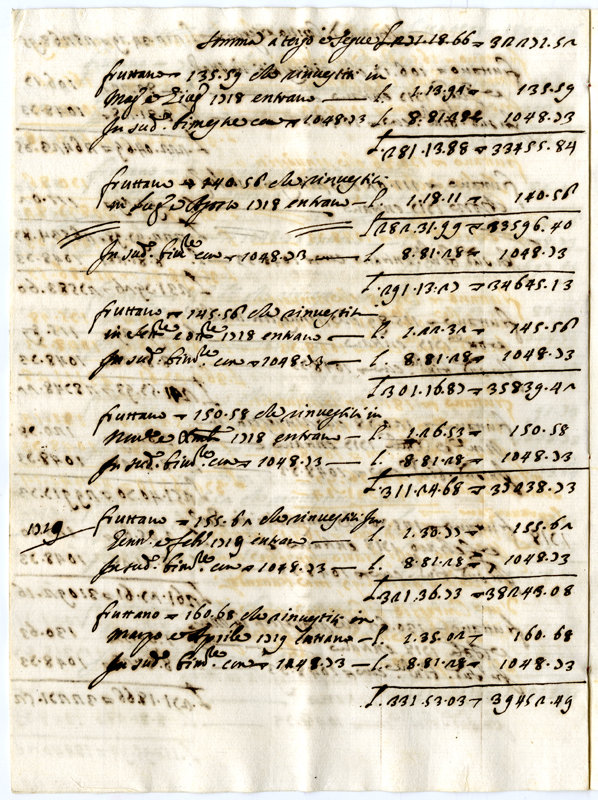 Somma a tergo e segue L 271.18.66 = 32271.52
fruttano = 135.59 che rinvestiti in
Magº e Giugº 1718 entrano — L. 1.13.94 = 135.59
In sudº. bimestre con = 1048.73 L. 8.81.28 1048.73
L. 281.13.88 = 33455.84
fruttano = 140.56 che rinvestiti
in Lugº e Agosto 1718 entrano — L. 1.18.11 = 140.56
L 282.31.99 = 33596.40
In sudº. bimtre con = 1048.73 — L. 8.81.28 = 1048.73
L. 291.13.27 = 34645.13
fruttano = 145.56 che rinvestiti
in Settre e ottre 1718 entrano — L. 1.22.32 = 145.56
In sudº. bimtre con = 1048.73 — L. 8.81.28 = 1048.73
L 301.16.87 = 35839.42
fruttano = 150.58 che rinvestiti in
Novre e Xmbre 1718 entrano — L. 1.26.53 = 150.58
In sudº. bimtre con = 1048.73 — L. 8.81.28 = 1048.73
L. 311.24.68 = 37038.73
1719 fruttano = 155.62 che rinvestiti in
Gennº. e Febº. 1719 entrano — L. 1.30.77 = 155.62
In sudº. bimtre con = 1048.73 — L. 8.81.28 = 1048.73
L. 321.36.73 = 38243.08
fruttano = 160.68 che rinvestiti in
Marzo e Aprile 1719 entrano — L. 1.35.02 = 160.68
In sudº. bimtre con = 1048.73 — L. 8.81.28 = 1048.73
L. 331.53.03 = 39452.49